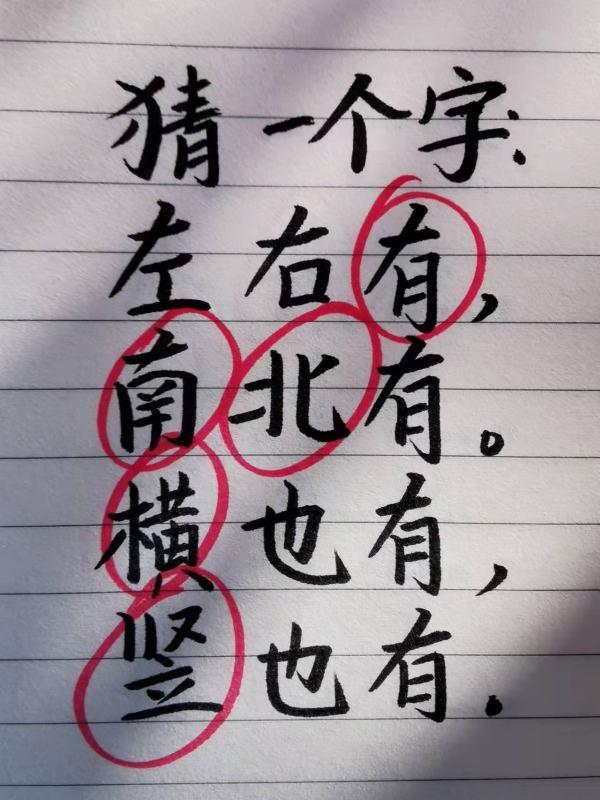 猜一个字:
左右有，
南北有。
横也有，
竖也有.